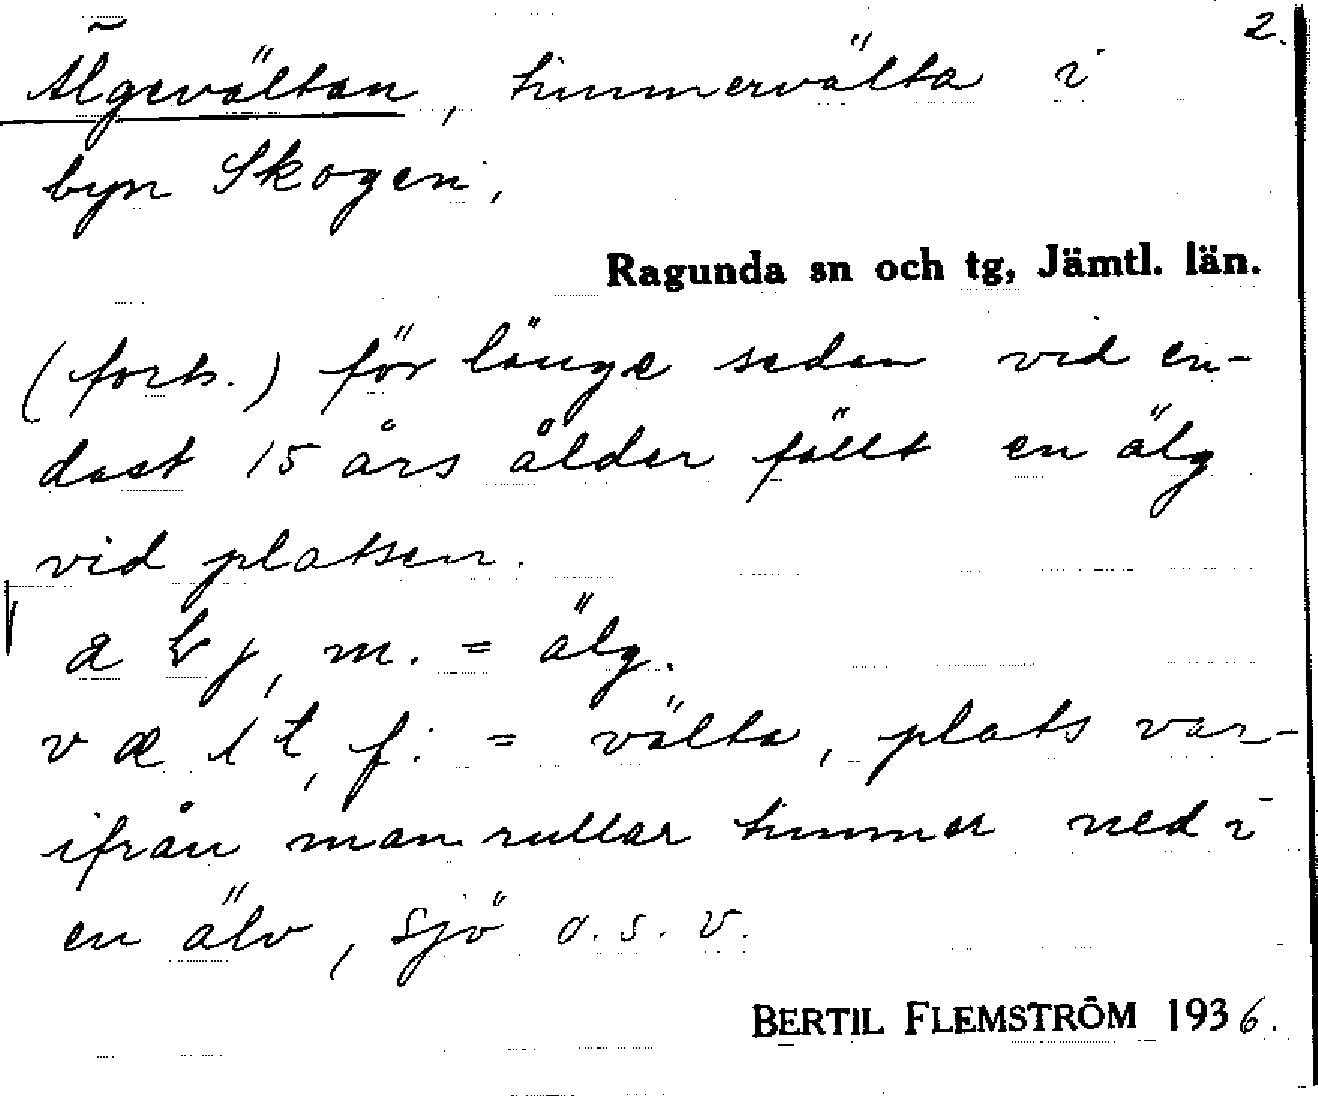 2.
Älgevältan, timmervälta i
byn Skogen,
Ragunda sn och tg, Jämtl. län.
(forts.) för länge sedan vid en-
dast 15 års ålder fällt en älg
vid platsen.
m. = älg.
f. = välta, plats var-
ifrån man rullar timmer ned i
en älv, sjö o.s.v.
BERTIL FLEMSTRÖM 1936.